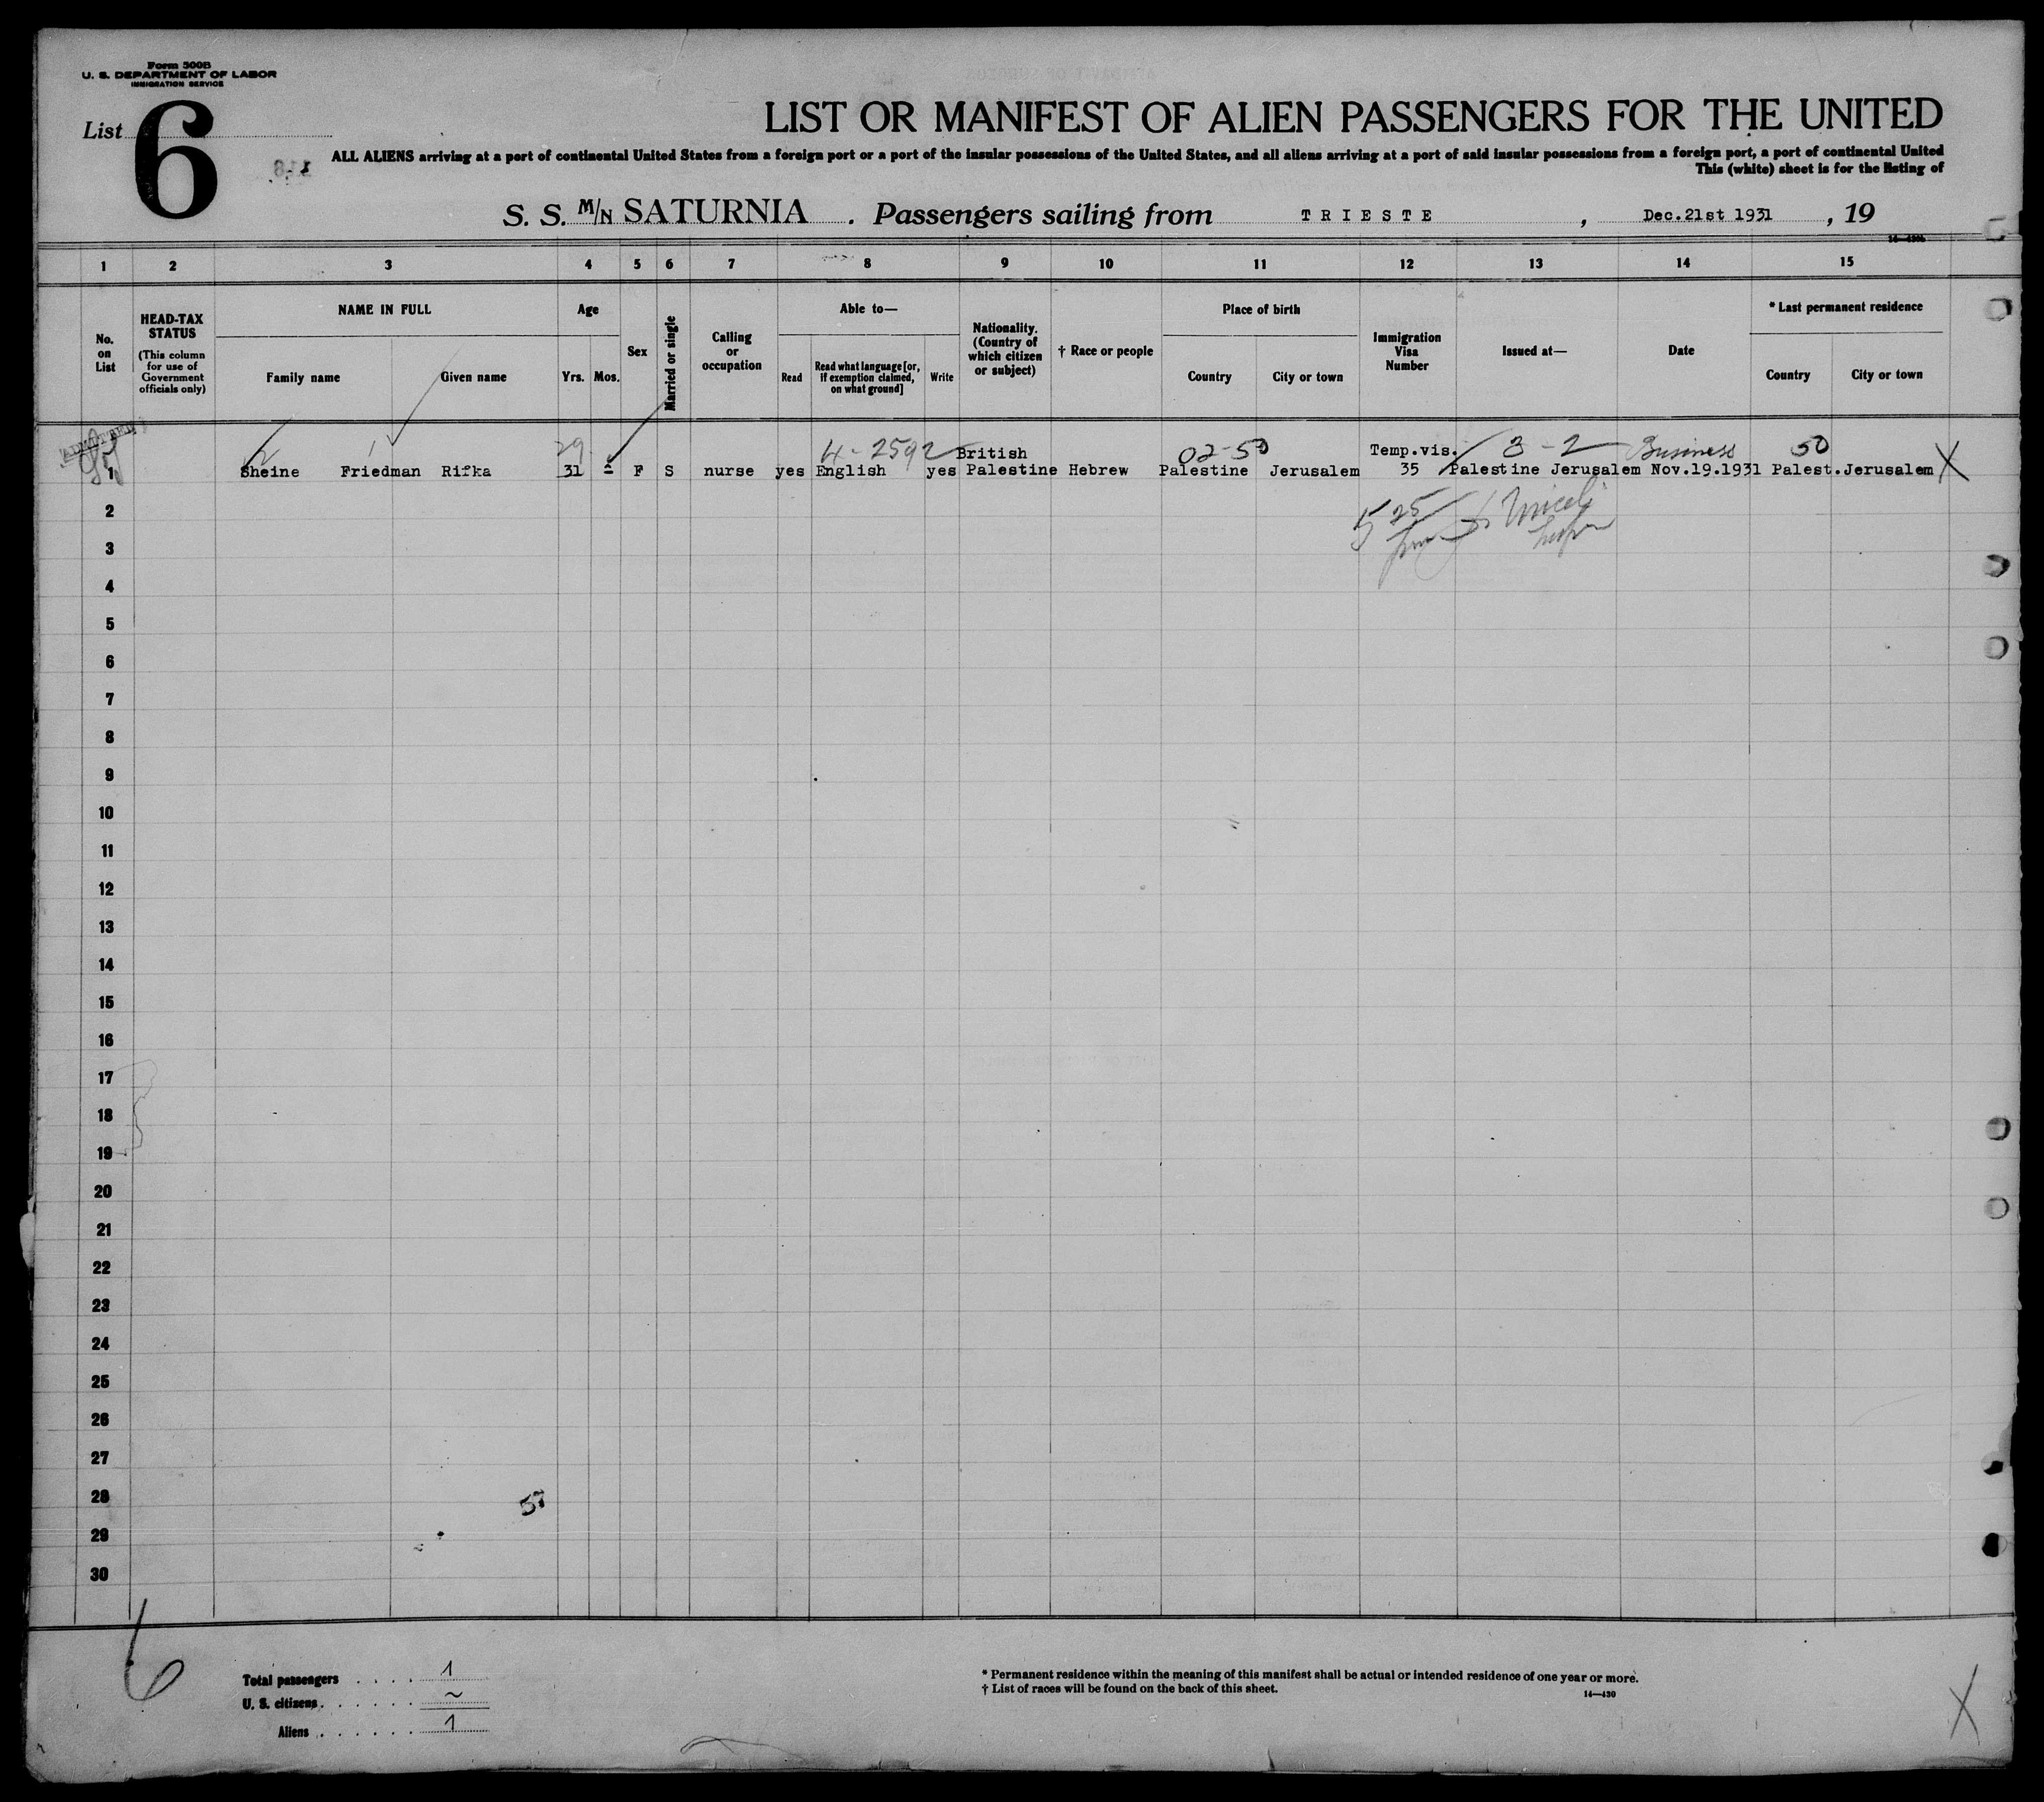 Form 500B
U. S. DEPARTMENT OF LABOR
IMMIGRATION SERVICE
List 6
LIST OR MANIFEST OF ALIEN PASSENGERS FOR THE UNITED
ALL ALIENS arriving at a port of continental United States from a foreign port or a port of the insular possessions of the United States, and all aliens arriving at a port of said insular possessions from a foreign port, a port of continental United
This (white) sheet is for the listing of
S. S. M/N SATURNIA . Passengers sailing from TRIESTE , Dec.21st 1931 , 19
14—430b
1 2 3 4 5 6 7 8 9 10 11 12 13 14 15
No. on List
HEAD-TAX STATUS
(This column for use of Government officials only)
NAME IN FULL
Family name Given name
Age
Yrs. Mos.
Sex
Married or single
Calling or occupation
Able to—
Read
Read what language [or, if exemption claimed, on what ground]
Write
Nationality. (Country of which citizen or subject)
† Race or people
Place of birth
Country City or town
Immigration Visa Number
Issued at—
Date
* Last permanent residence
Country City or town
ADMITTED
29 4-2592 British 02-50 Temp.vis. 3-2 Business 50
1 Sheine Friedman Rifka 31 - F S nurse yes English yes Palestine Hebrew Palestine Jerusalem 35 Palestine Jerusalem Nov.19.1931 Palest. Jerusalem X
525
2
3
4
5
6
7
8
9
10
11
12
13
14
15
16
17
18
19
20
21
22
23
24
25
26
27
28
29
30
6
Total passengers . . . . 1
U. S. citizens . . . . . . ~
Aliens . . . . . . 1
* Permanent residence within the meaning of this manifest shall be actual or intended residence of one year or more.
† List of races will be found on the back of this sheet.
14—430
X